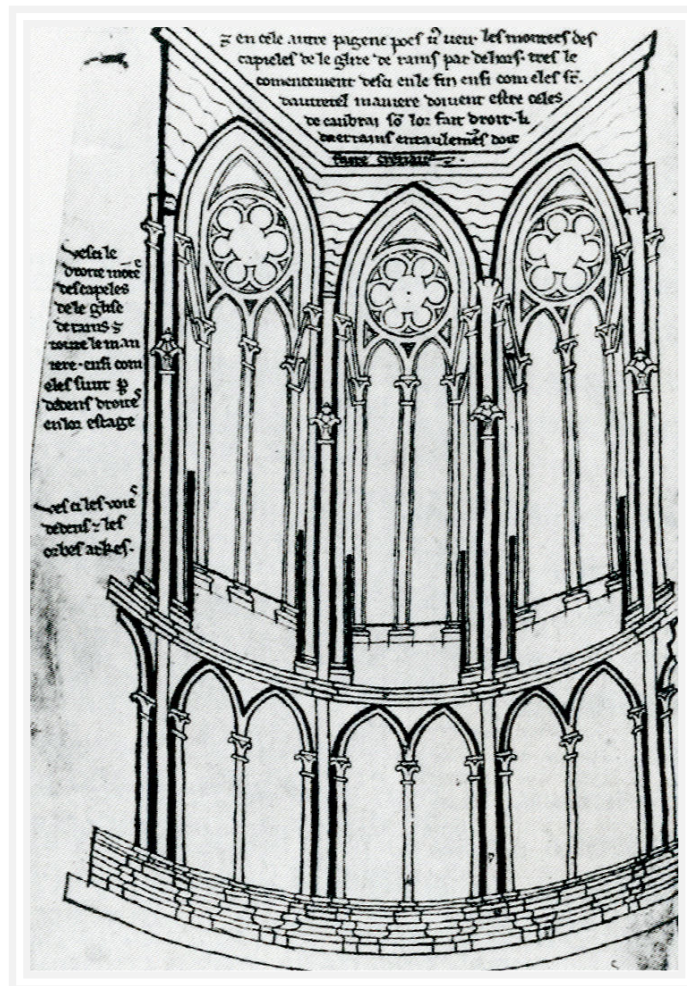 ⁊ en cele autre pagene poes ũ veir les montees des
capieles de le glize de rains par dehors. tres le
comencement desci en le fin ensi com eles st̃.
dautretel maniere doivent estre celes
de canbrai sõ lor fait droit. li
daerrains entaulemẽs doit
faire cretiaus
vesci le
droite mõtee
des capeles
de le glise
de rains ⁊
toute le man
iere. ensi com
eles sunt p̱
dedens droites
en lor estage
vesci les voies
dedens ⁊ les
orbes arkes.